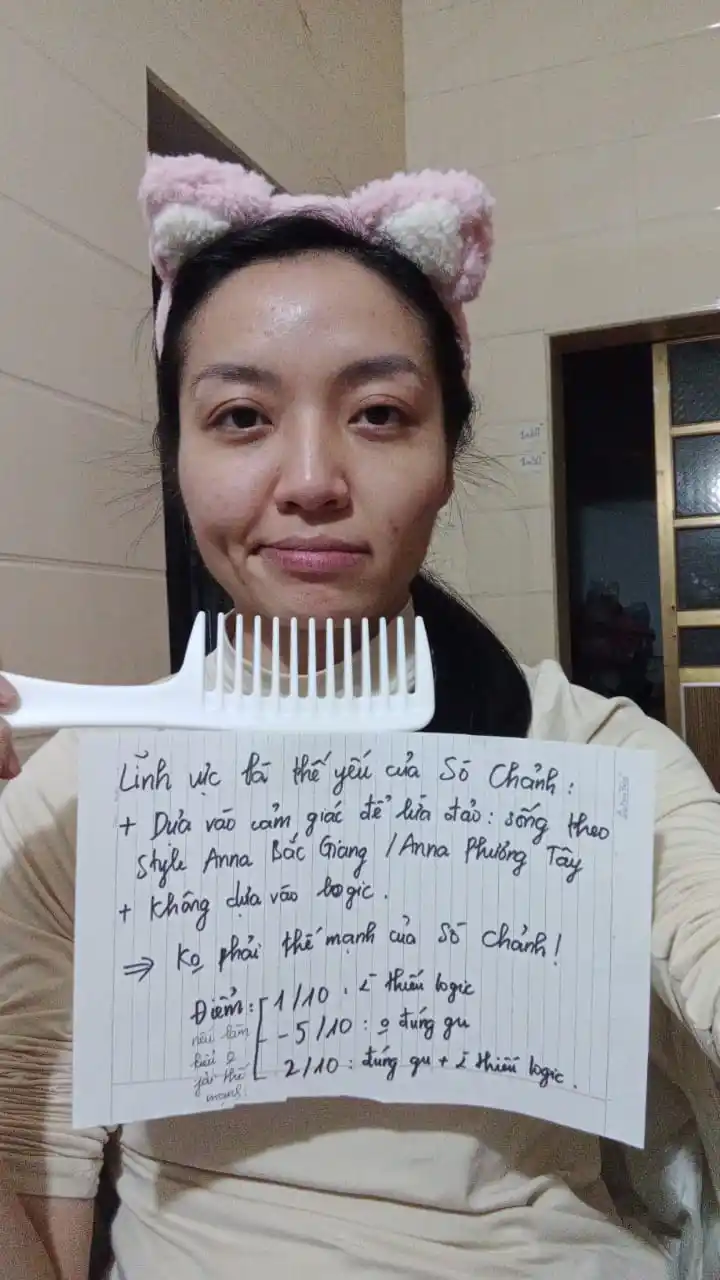 Lĩnh vực là thế yếu của Sở Chảnh:
+ Dựa vào cảm giác để lừa đảo: sống theo
style Anna Bắc Giang / Anna Phương Tây
+ Không dựa vào logic.
⇒ Ko phải thế mạnh của Sở Chảnh!
Điểm: 1/10 : thiếu logic
nếu làm - 5/10 : đúng gu
thế 2/10 : đúng gu + thiếu logic.
mạnh